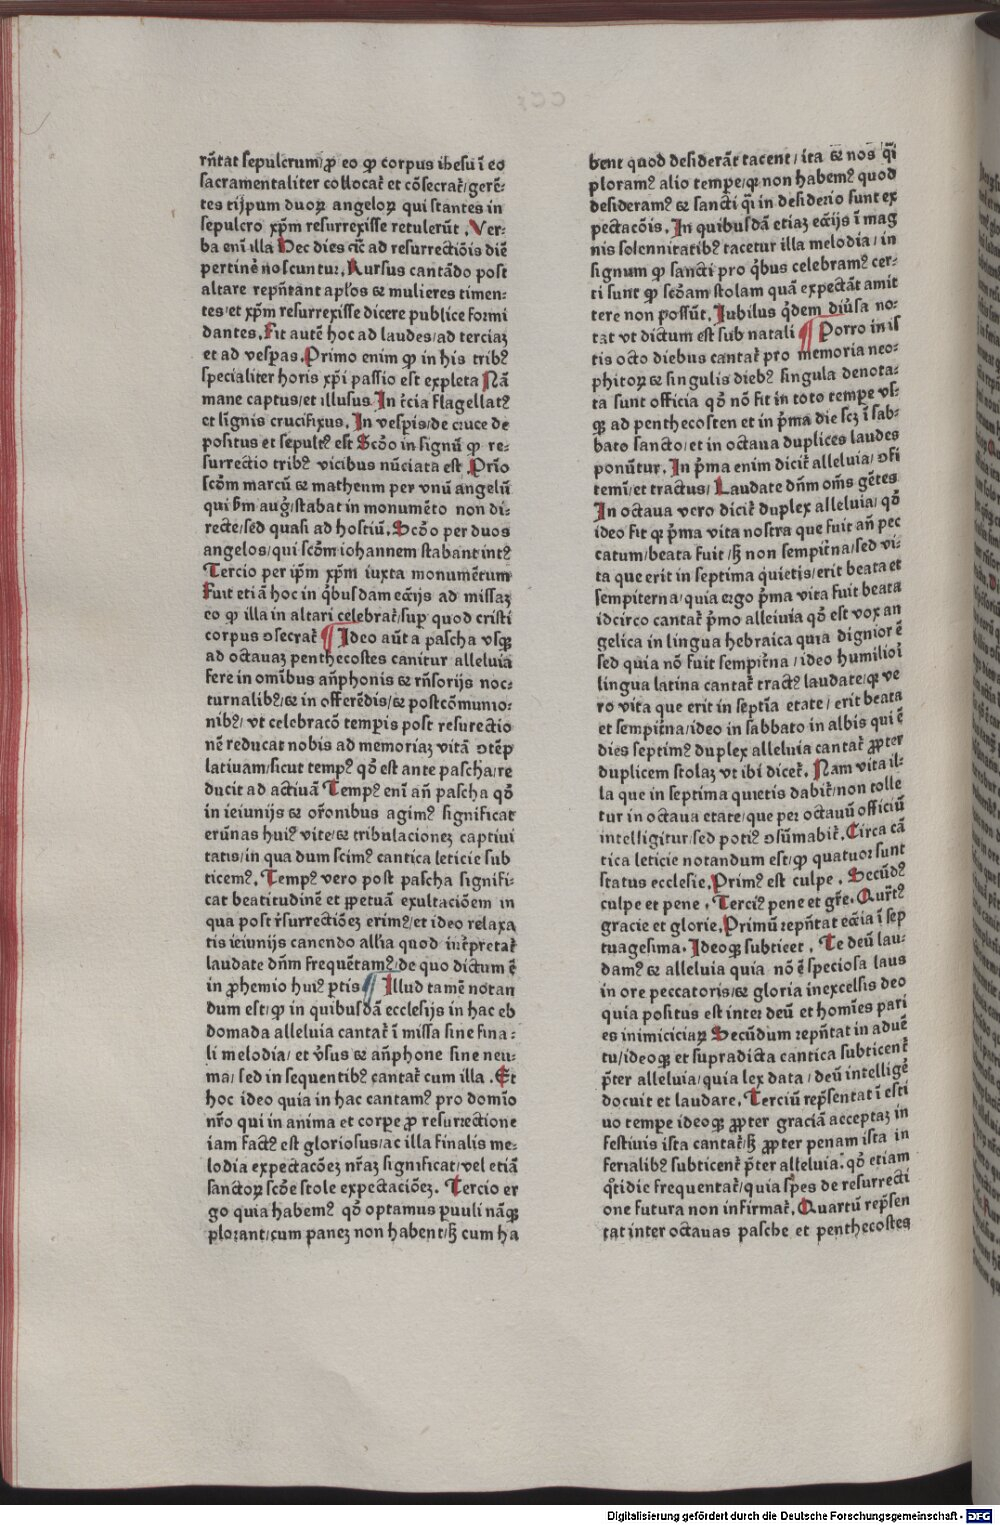 rñtat sepulcrum/ꝓ eo ꝙ corpus ihesu ī eo
sacramentaliter collocat᷑ et cōsecrat᷑/gerē-
tes tijpum duoꝝ angeloꝝ qui stantes in
sepulcro xp̄m resurrexisse retulerūt . Ver-
ba enī illa Hec dies ⁊c̄ ad resurrectiōis diē
pertinē noscuntur. Rursus cantādo post
altare repñtant apl̄os ⁊ mulieres timen-
tes/et xp̄m resurrexisse dicere publice formi
dantes. Fit autē hoc ad laudes/ad terciaꝫ
et ad vesꝑas. Primo enim ꝙ in his tribꝰ
specialiter horis xp̄i passio est expleta Nā
mane captus/et illusus In t̄cia flagellatꝰ
et lignis crucifixus. In vesꝑis/de cruce de
positus et sepultꝰ est Scd̄o in signū ꝙ re-
surrectio tribꝰ vicibus nūciata est . Prīo
scd̄m marcū ⁊ matheum per vnū angelū
qui ẜm aug᷑/stabat in monumēto non di-
recte/sed quasi ad hostiū. Scd̄o per duos
angelos/qui scd̄m iohannem stabant intꝰ
Tercio per ip̄m xp̄m iuxta monumētum
Fuit etiā hoc in q̇busdam eccl̄ijs ad missaꝫ
eo ꝙ illa in altari celebrat᷑/suꝑ quod cristi
corpus ↄsecrat᷑ ¶ Ideo aūt a pascha vsqꝫ
ad octauaꝫ penthecostes canitur alleluia
fere in omībus añphonis ⁊ rñsorijs noc-
turnalibꝰ/⁊ in offerēdis/⁊ postcōmunio-
nibꝰ/ vt celebracō temꝑis post resurectio
nē reducat nobis ad memoriaꝫ vitā ↄtēp
latiuam/sicut tempꝰ qd̄ est ante pascha/re
ducit ad actiuā Tempꝰ enī añ pascha qd̄
in ieiunijs ⁊ or̄onibus agimꝰ significat
erūnas huiꝰ vite/⁊ tribulacioneꝫ captiui
tatis/in qua dum scimꝰ cantica leticie sub
ticemꝰ. Tempꝰ vero post pascha signifi-
cat beatitudinē et ꝑpetuā exultaciōem in
qua post r̄surrectiōeꝫ erimꝰ/et ideo relaxa
tis ieiunijs canendo all̄ia quod int̄pretat᷑
laudate dn̄m frequētamꝰ/de quo dictum ē
in ꝓhemio huiꝰ ꝑtis ¶ Illud tamē notan
dum est/ꝙ in quibusdā ecclesijs in hac eb
domada alleluia cantat᷑ ī missa sine fina-
li melodia/ et v̄sus ⁊ añphone sine neu-
ma/ sed in sequentibꝰ cantat᷑ cum illa . Et
hoc ideo quia in hac cantamꝰ pro domīo
nr̄o qui in anima et corpe ꝓ resurrectione
iam factꝰ est gloriosus/ac illa finalis me-
lodia expectacōeꝫ nr̄aꝫ significat/vel etiā
sanctoꝝ scd̄e stole expectaciōeꝫ. Tercio er
go quia habemꝰ qd̄ optamus ꝑuuli nāqꝫ
plorant/cum paneꝫ non habent/ꝫ cum ha
bent quod desiderāt tacent/ita ⁊ nos q̄i
ploramꝰ alio tempe/qꝛ non habemꝰ quod
desideramꝰ ⁊ sancti q̄i in desiderio sunt ex
pectacōis. In quibusdā etiaꝫ eccl̄ijs ī mag
nis solennitatibꝰ tacetur illa melodia/ in
signum ꝙ sancti pro q̇bus celebramꝰ cer-
ti sunt ꝙ scd̄am stolam quā expectāt amit
tere non possūt. Iubilus q̇dem diūsa no-
tat vt dictum est sub natali ¶ Porro in is
tis octo diebus cantat᷑ pro memoria neo-
phitoꝝ ⁊ singulis diebꝰ singula denota-
ta sunt officia qd̄ nō fit in toto tempe vs-
qꝫ ad penthecosten et in p̄ma die scꝫ ī sab-
bato sancto/et in octaua duplices laudes
ponūtur. In p̄ma enim dicit᷑ alleluia/ ↄfi
temī/et tractus/ Laudate dn̄m om̄s gētes
In octaua vero dicit᷑ duplex alleluia/ qd̄
ideo fit qꝛ p̄ma vita nostra que fuit añ pec
catum/beata fuit/ꝫ non sempit̄na/sed vi-
ta que erit in septima quietis/erit beata et
sempiterna/quia ergo p̄ma vita fuit beata
idcirco cantat᷑ p̄mo alleluia qd̄ est vox an
gelica in lingua hebraica quia dignior ē
sed quia nō fuit sempit̄na /ideo humiliori
lingua latina cantat᷑ tractꝰ laudate/qꝛ ve
ro vita que erit in septīa etate/ erit beata
et sempit̄na/ideo in sabbato in albis qui ē
dies septimꝰ duplex alleluia cantat᷑ ꝓpter
duplicem stolaꝫ vt ibi dicet᷑. Nam vita il-
la que in septima quietis dabit᷑/non tolle
tur in octaua etate/que per octauū officiū
intelligitur/sed potiꝰ ↄsūmabit᷑. Circa cā
tica leticie notandum est/ꝙ quatuor sunt
status ecclesie. Primꝰ est culpe . Secūdꝰ
culpe et pene . Terciꝰ pene et gr̄e. Quartꝰ
gracie et glorie. Primū repñtat eccl̄ia ī sep
tuagesima. Ideoqꝫ subticet . Te deū lau-
damꝰ ⁊ alleluia quia nō ē speciosa laus
in ore peccatoris/⁊ gloria inexcelsis deo
quia positus est inter deū et homīes pari
es inimiciciaꝝ Secūdum repñtat in aduē
tu/ideoqꝫ et supradicta cantica subticent᷑
p̄ter alleluia/quia lex data/ deū intelligē
docuit et laudare. Terciū rep̄sentat ī esti
uo tempe ideoqꝫ ꝓpter graciā acceptaꝫ in
festiuis ista cantat᷑/ꝫ ꝓpter penam ista in
ferialibꝰ subticent᷑ p̄ter alleluia. qd̄ etiam
q̊tidie frequentat᷑/quia spes de resurrecti
one futura non infirmat᷑. Quartū rep̄sen
tat inter octauas pasche et penthecostes
Digitalisierung gefördert durch die Deutsche Forschungsgemeinschaft - DFG